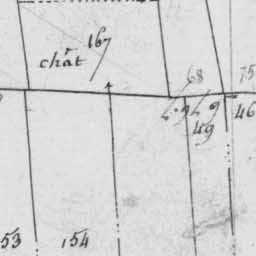 167
chât
68
75
49
46
53
154